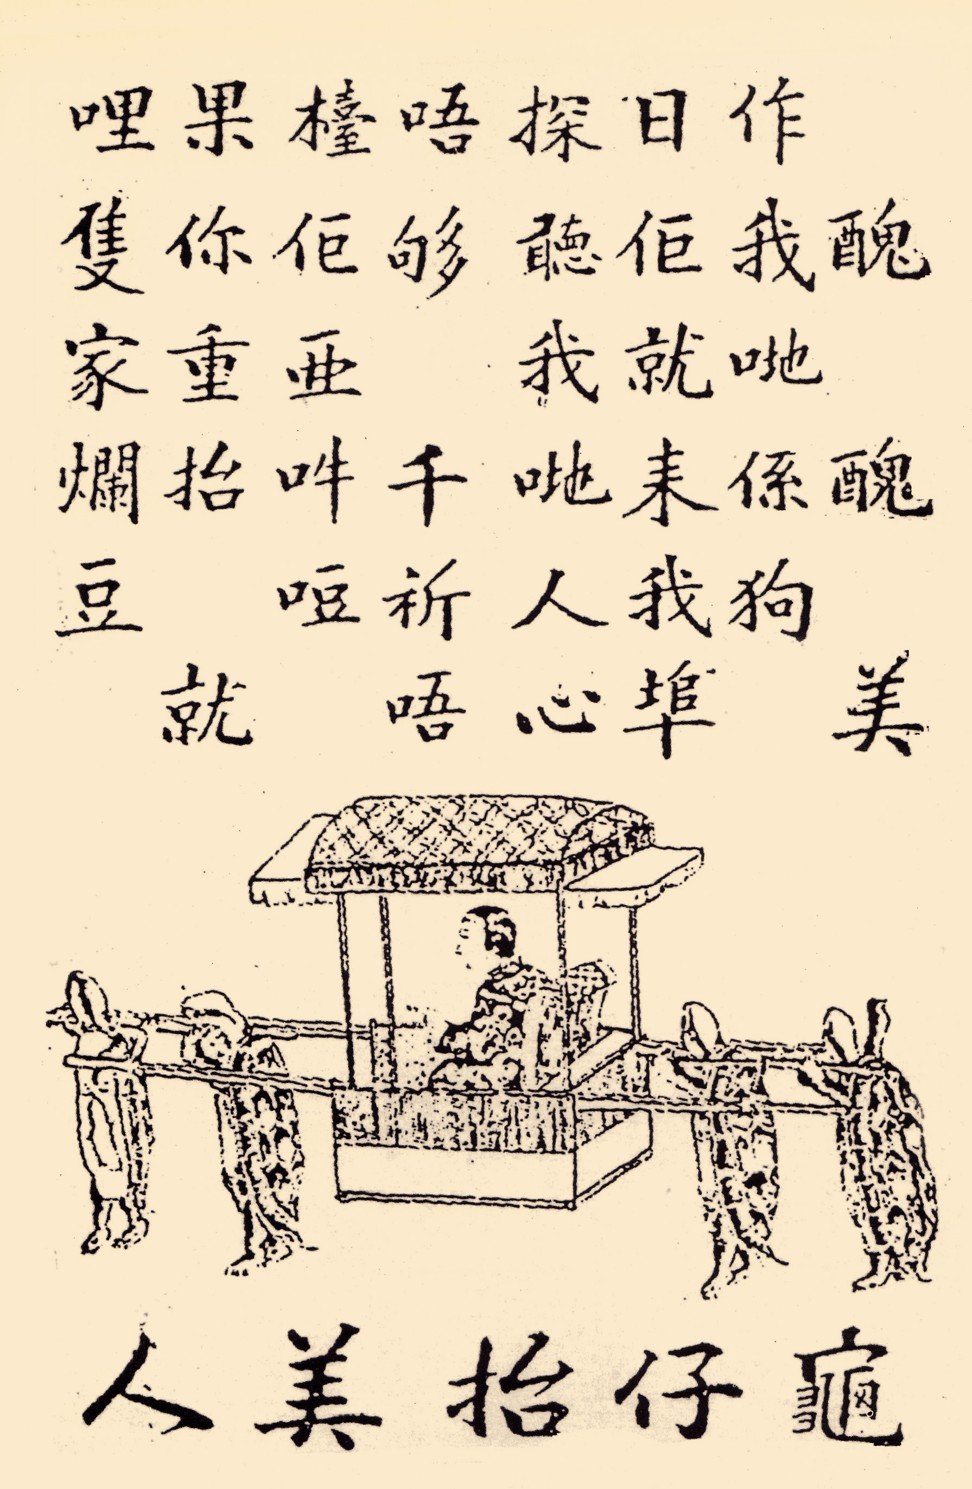 醜醜美
作我哋係狗
日佢就来我埠
探聽我哋人心
唔够千祈唔
檯佢亜吽哣
果你重抬就
哩隻家爛豆
龜仔抬美人